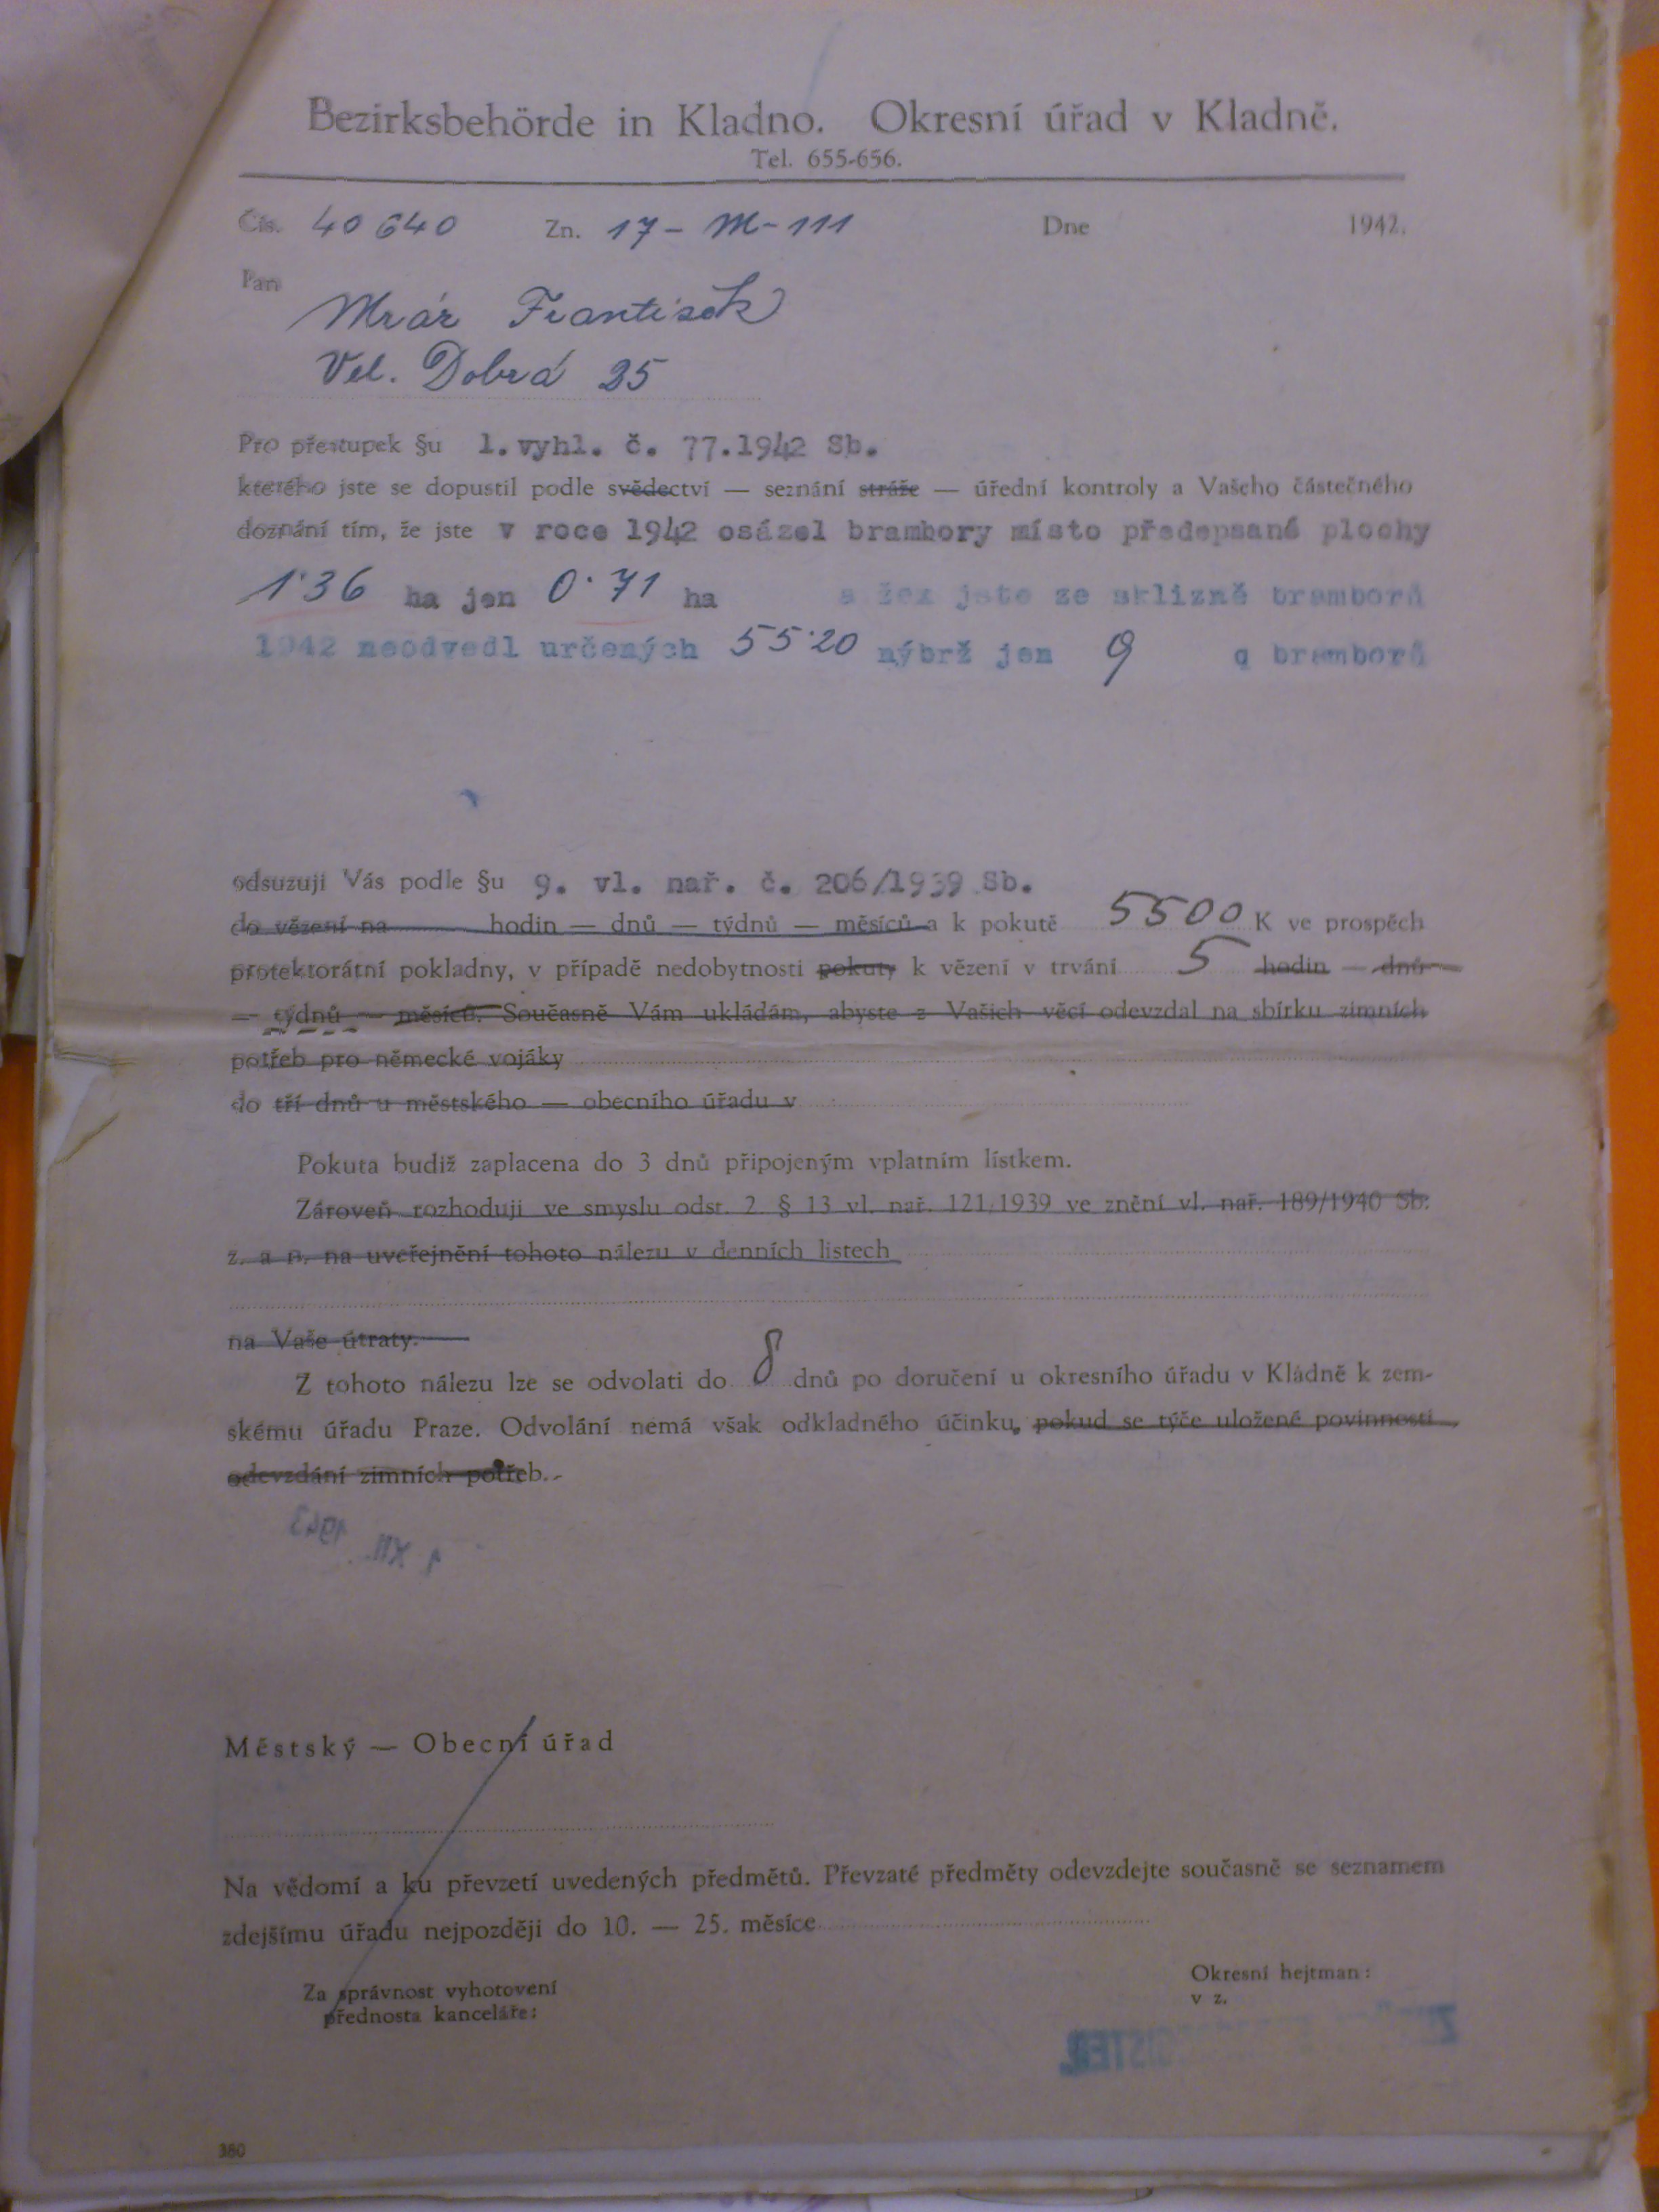 Bezirksbehörde in Kladno. Okresní úřad v Kladně.
Tel. 655-656.
Čís. 40640 Zn. 17-M-111 Dne 1942.
Pan
Mrár František
Vel. Dobrá 25
Pro přestupek §u 1.vyhl. č. 77.1942 Sb.
kterého jste se dopustil podle svědectví — seznání stráže — úřední kontroly a Vašeho částečného
doznání tím, že jste v roce 1942 osázel brambory místo předepsané plochy
1·36 ha jen 0·71 ha a žex jste ze sklizně bramborů
1942 neodvedl určených 55·20 nýbrž jen 9 q bramborů
odsuzuji Vás podle §u 9. vl. nař. č. 206/1939 Sb.
do vězení na hodin — dnů — týdnů — měsíců a k pokutě 5500 K ve prospěch
protektorátní pokladny, v případě nedobytnosti pokuty k vězení v trvání 5 hodin — dnů
— týdnů — měsíců. Současně Vám ukládám, abyste z Vašich věcí odevzdal na sbírku zimních
potřeb pro německé vojáky
do tří dnů u městského — obecního úřadu v
Pokuta budiž zaplacena do 3 dnů připojeným vplatním lístkem.
Zároveň rozhoduji ve smyslu odst. 2 § 13 vl. nař. 121/1939 ve znění vl. nař. 189/1940 Sb.
z. a n. na uveřejnění tohoto nálezu v denních listech
na Vaše útraty.
Z tohoto nálezu lze se odvolati do 8 dnů po doručení u okresního úřadu v Kladně k zem-
skému úřadu Praze. Odvolání nemá však odkladného účinku, pokud se týče uložené povinnosti
odevzdání zimních potřeb.
1 XII. 1943
Městský — Obecní úřad
Na vědomí a ku převzetí uvedených předmětů. Převzaté předměty odevzdejte současně se seznamem
zdejšímu úřadu nejpozději do 10. — 25. měsíce
Za správnost vyhotovení
přednosta kanceláře:
Okresní hejtman:
v z.
380